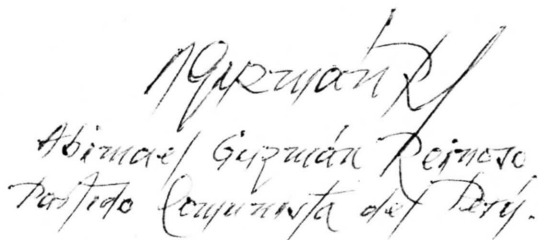 AGuzmánR
Abimael Guzmán Reinoso
Partido Comunista del Perú.